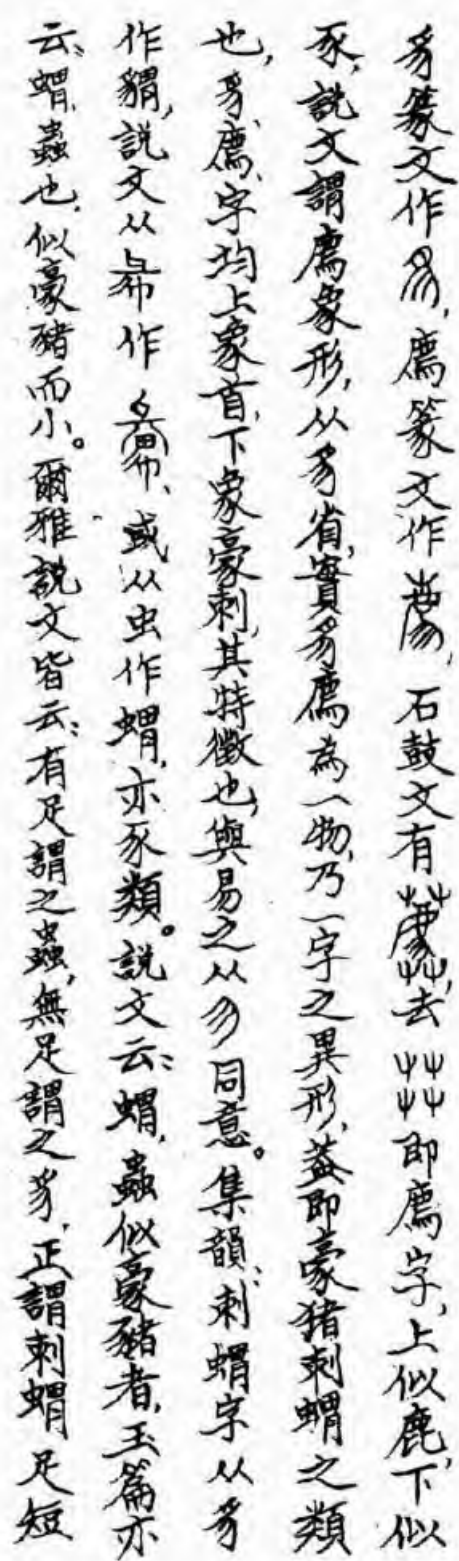 豸篆文作,廌篆文作,石鼓文有,去艸艸即廌字,上似鹿,下似
豕,說文謂廌象形,从豸省,實豸廌為一物,乃一字之異形,葢即豪猪刺蝟之類
也,豸、廌、字均上象首,下象豪刺,其特徵也,與易之从勿同意。集韻:刺蝟字从豸
作,說文从㣇作、或从虫作蝟,亦豕類。說文云:蝟,蟲似豪豬者,玉篇亦
云:蝟,蟲也,似豪豬而小。爾雅說文皆云:有足謂之蟲,無足謂之豸,正謂刺蝟足短